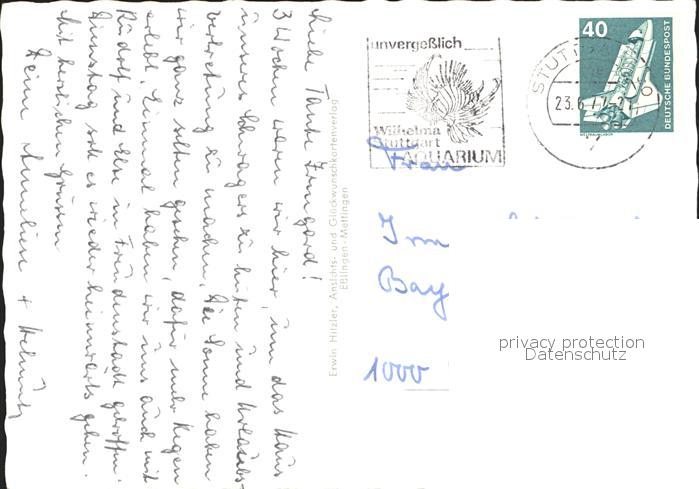 Liebe Tante Irmgard!
3 Wochen waren wir hier, um das Haus
unseres Schwagers zu hüten und Urlaubs-
vertretung zu machen. Die Sonne haben
wir ganz selten gesehen, dafür mehr Regen
erlebt. Einmal haben wir uns auch mit
Rudolf und Ilse in Freudenstadt getroffen.
Dienstag soll es wieder heimwärts gehen.
Mit herzlichen Grüssen
Deine Anneliese + Helmut
Erwin Hitzler, Ansichts- und Glückwunschkartenverlag
Eßlingen-Mettingen
unvergeßlich
Wilhelma
Stuttgart
AQUARIUM
STUTT
23.6.7
40
DEUTSCHE BUNDESPOST
Frau
Irm
Bay
1000
privacy protection
Datenschutz